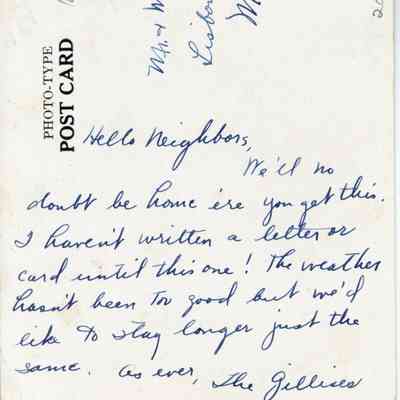 PHOTO-TYPE
POST CARD
Mr. & M
Lisbo
M
20
Hello Neighbors,
We'll no
doubt be home ere you get this.
I haven't written a letter or
card until this one! The weather
hasn't been too good but we'd
like to stay longer just the
same. As ever, The Gillises